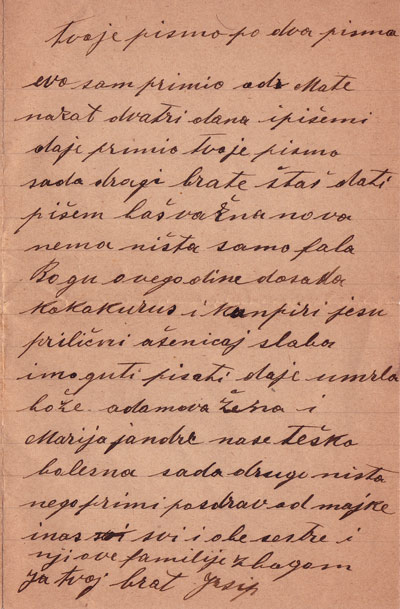 tvoje pismo po dva pisma
evo sam primio od Mate
nazat dvatri dana ipišemi
daje primio tvoje pismo
sada dragi brate štaš dati
pišem baš važna nova
nema ništa samo fala
Bogu ovegodine dosada
kakakurus i kunpiri jesu
prilični ašenicaj slaba
imoguti pisati daje umrla
bože adamova žena i
Marija jandre nase teško
bolesna sada drugo nista
nego primi pozdrav od majke
inas svi i obe sestre i
njiove familije zbogom
ja tvoj brat Jozip